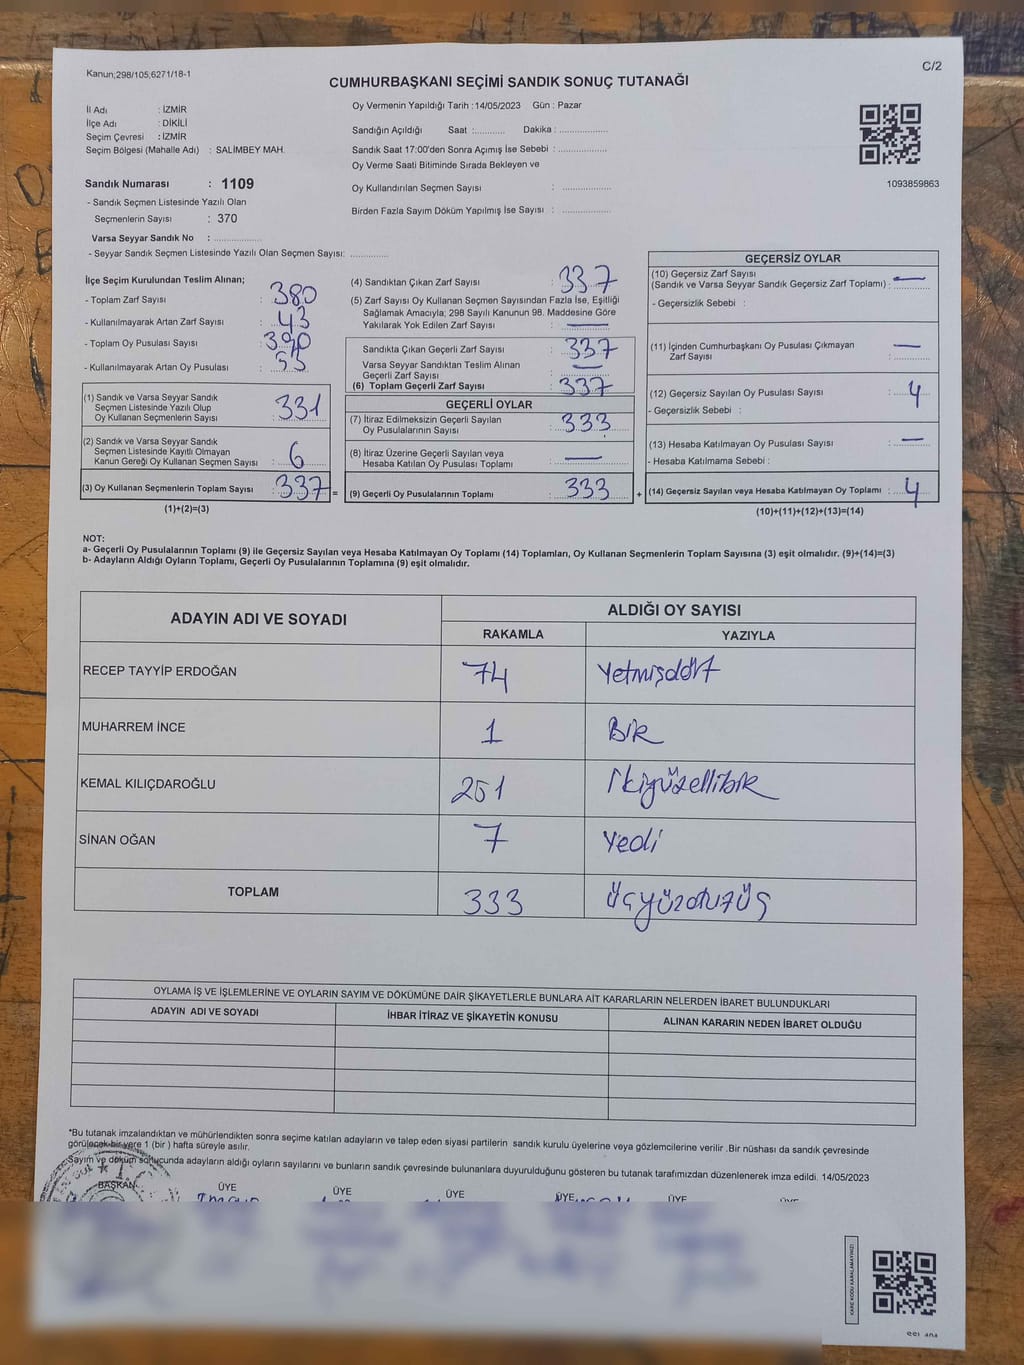 Kanun;298/105,6271/18-1
C/2
CUMHURBAŞKANI SEÇİMİ SANDIK SONUÇ TUTANAĞI
İl Adı : İZMİR
İlçe Adı : DİKİLİ
Seçim Çevresi : İZMİR
Seçim Bölgesi (Mahalle Adı) : SALİMBEY MAH.
Sandık Numarası : 1109
- Sandık Seçmen Listesinde Yazılı Olan
Seçmenlerin Sayısı : 370
Varsa Seyyar Sandık No : ..............
- Seyyar Sandık Seçmen Listesinde Yazılı Olan Seçmen Sayısı: ............
Oy Vermenin Yapıldığı Tarih : 14/05/2023 Gün : Pazar
Sandığın Açıldığı Saat :.......... Dakika : ................
Sandık Saat 17:00'den Sonra Açımış İse Sebebi : ................
Oy Verme Saati Bitiminde Sırada Bekleyen ve
Oy Kullandırılan Seçmen Sayısı : ................
Birden Fazla Sayım Döküm Yapılmış İse Sayısı : ................
1093859863
İlçe Seçim Kurulundan Teslim Alınan;
- Toplam Zarf Sayısı : 380
- Kullanılmayarak Artan Zarf Sayısı : 43
- Toplam Oy Pusulası Sayısı : 390
- Kullanılmayarak Artan Oy Pusulası : 53
(1) Sandık ve Varsa Seyyar Sandık
Seçmen Listesinde Yazılı Olup
Oy Kullanan Seçmenlerin Sayısı : 331
(2) Sandık ve Varsa Seyyar Sandık
Seçmen Listesinde Kayıtlı Olmayan
Kanun Gereği Oy Kullanan Seçmen Sayısı : 6
(3) Oy Kullanan Seçmenlerin Toplam Sayısı : 337 =
(1)+(2)=(3)
(4) Sandıktan Çıkan Zarf Sayısı : 337
(5) Zarf Sayısı Oy Kullanan Seçmen Sayısından Fazla İse, Eşitliği
Sağlamak Amacıyla; 298 Sayılı Kanunun 98. Maddesine Göre
Yakılarak Yok Edilen Zarf Sayısı : —
Sandıkta Çıkan Geçerli Zarf Sayısı : 337
Varsa Seyyar Sandıktan Teslim Alınan
Geçerli Zarf Sayısı : —
(6) Toplam Geçerli Zarf Sayısı : 337
GEÇERLİ OYLAR
(7) İtiraz Edilmeksizin Geçerli Sayılan
Oy Pusulalarının Sayısı : 333
(8) İtiraz Üzerine Geçerli Sayılan veya
Hesaba Katılan Oy Pusulası Toplamı : —
(9) Geçerli Oy Pusulalarının Toplamı : 333 +
GEÇERSİZ OYLAR
(10) Geçersiz Zarf Sayısı
(Sandık ve Varsa Seyyar Sandık Geçersiz Zarf Toplamı) : —
- Geçersizlik Sebebi :
(11) İçinden Cumhurbaşkanı Oy Pusulası Çıkmayan
Zarf Sayısı : —
(12) Geçersiz Sayılan Oy Pusulası Sayısı : 4
- Geçersizlik Sebebi :
(13) Hesaba Katılmayan Oy Pusulası Sayısı : —
- Hesaba Katılmama Sebebi :
(14) Geçersiz Sayılan veya Hesaba Katılmayan Oy Toplamı : 4
(10)+(11)+(12)+(13)=(14)
NOT:
a- Geçerli Oy Pusulalarının Toplamı (9) ile Geçersiz Sayılan veya Hesaba Katılmayan Oy Toplamı (14) Toplamları, Oy Kullanan Seçmenlerin Toplam Sayısına (3) eşit olmalıdır. (9)+(14)=(3)
b- Adayların Aldığı Oyların Toplamı, Geçerli Oy Pusulalarının Toplamına (9) eşit olmalıdır.
ADAYIN ADI VE SOYADI
ALDIĞI OY SAYISI
RAKAMLA YAZIYLA
RECEP TAYYİP ERDOĞAN 74 Yetmişdört
MUHARREM İNCE 1 Bir
KEMAL KILIÇDAROĞLU 251 İkiyüzellibir
SİNAN OĞAN 7 Yedi
TOPLAM 333 Üçyüzotuzüç
OYLAMA İŞ VE İŞLEMLERİNE VE OYLARIN SAYIM VE DÖKÜMÜNE DAİR ŞİKAYETLERLE BUNLARA AİT KARARLARIN NELERDEN İBARET BULUNDUKLARI
ADAYIN ADI VE SOYADI İHBAR İTİRAZ VE ŞİKAYETİN KONUSU ALINAN KARARIN NEDEN İBARET OLDUĞU
*Bu tutanak imzalandıktan ve mühürlendikten sonra seçime katılan adayların ve talep eden siyasi partilerin sandık kurulu üyelerine veya gözlemcilerine verilir .Bir nüshası da sandık çevresinde
görülecek bir yere 1 (bir ) hafta süreyle asılır.
Sayım ve döküm sonucunda adayların aldığı oyların sayılarını ve bunların sandık çevresinde bulunanlara duyurulduğunu gösteren bu tutanak tarafımızdan düzenlenerek imza edildi. 14/05/2023
BAŞKAN ÜYE ÜYE ÜYE ÜYE ÜYE ÜYE
KARE KODU KARALAMAYINIZ!